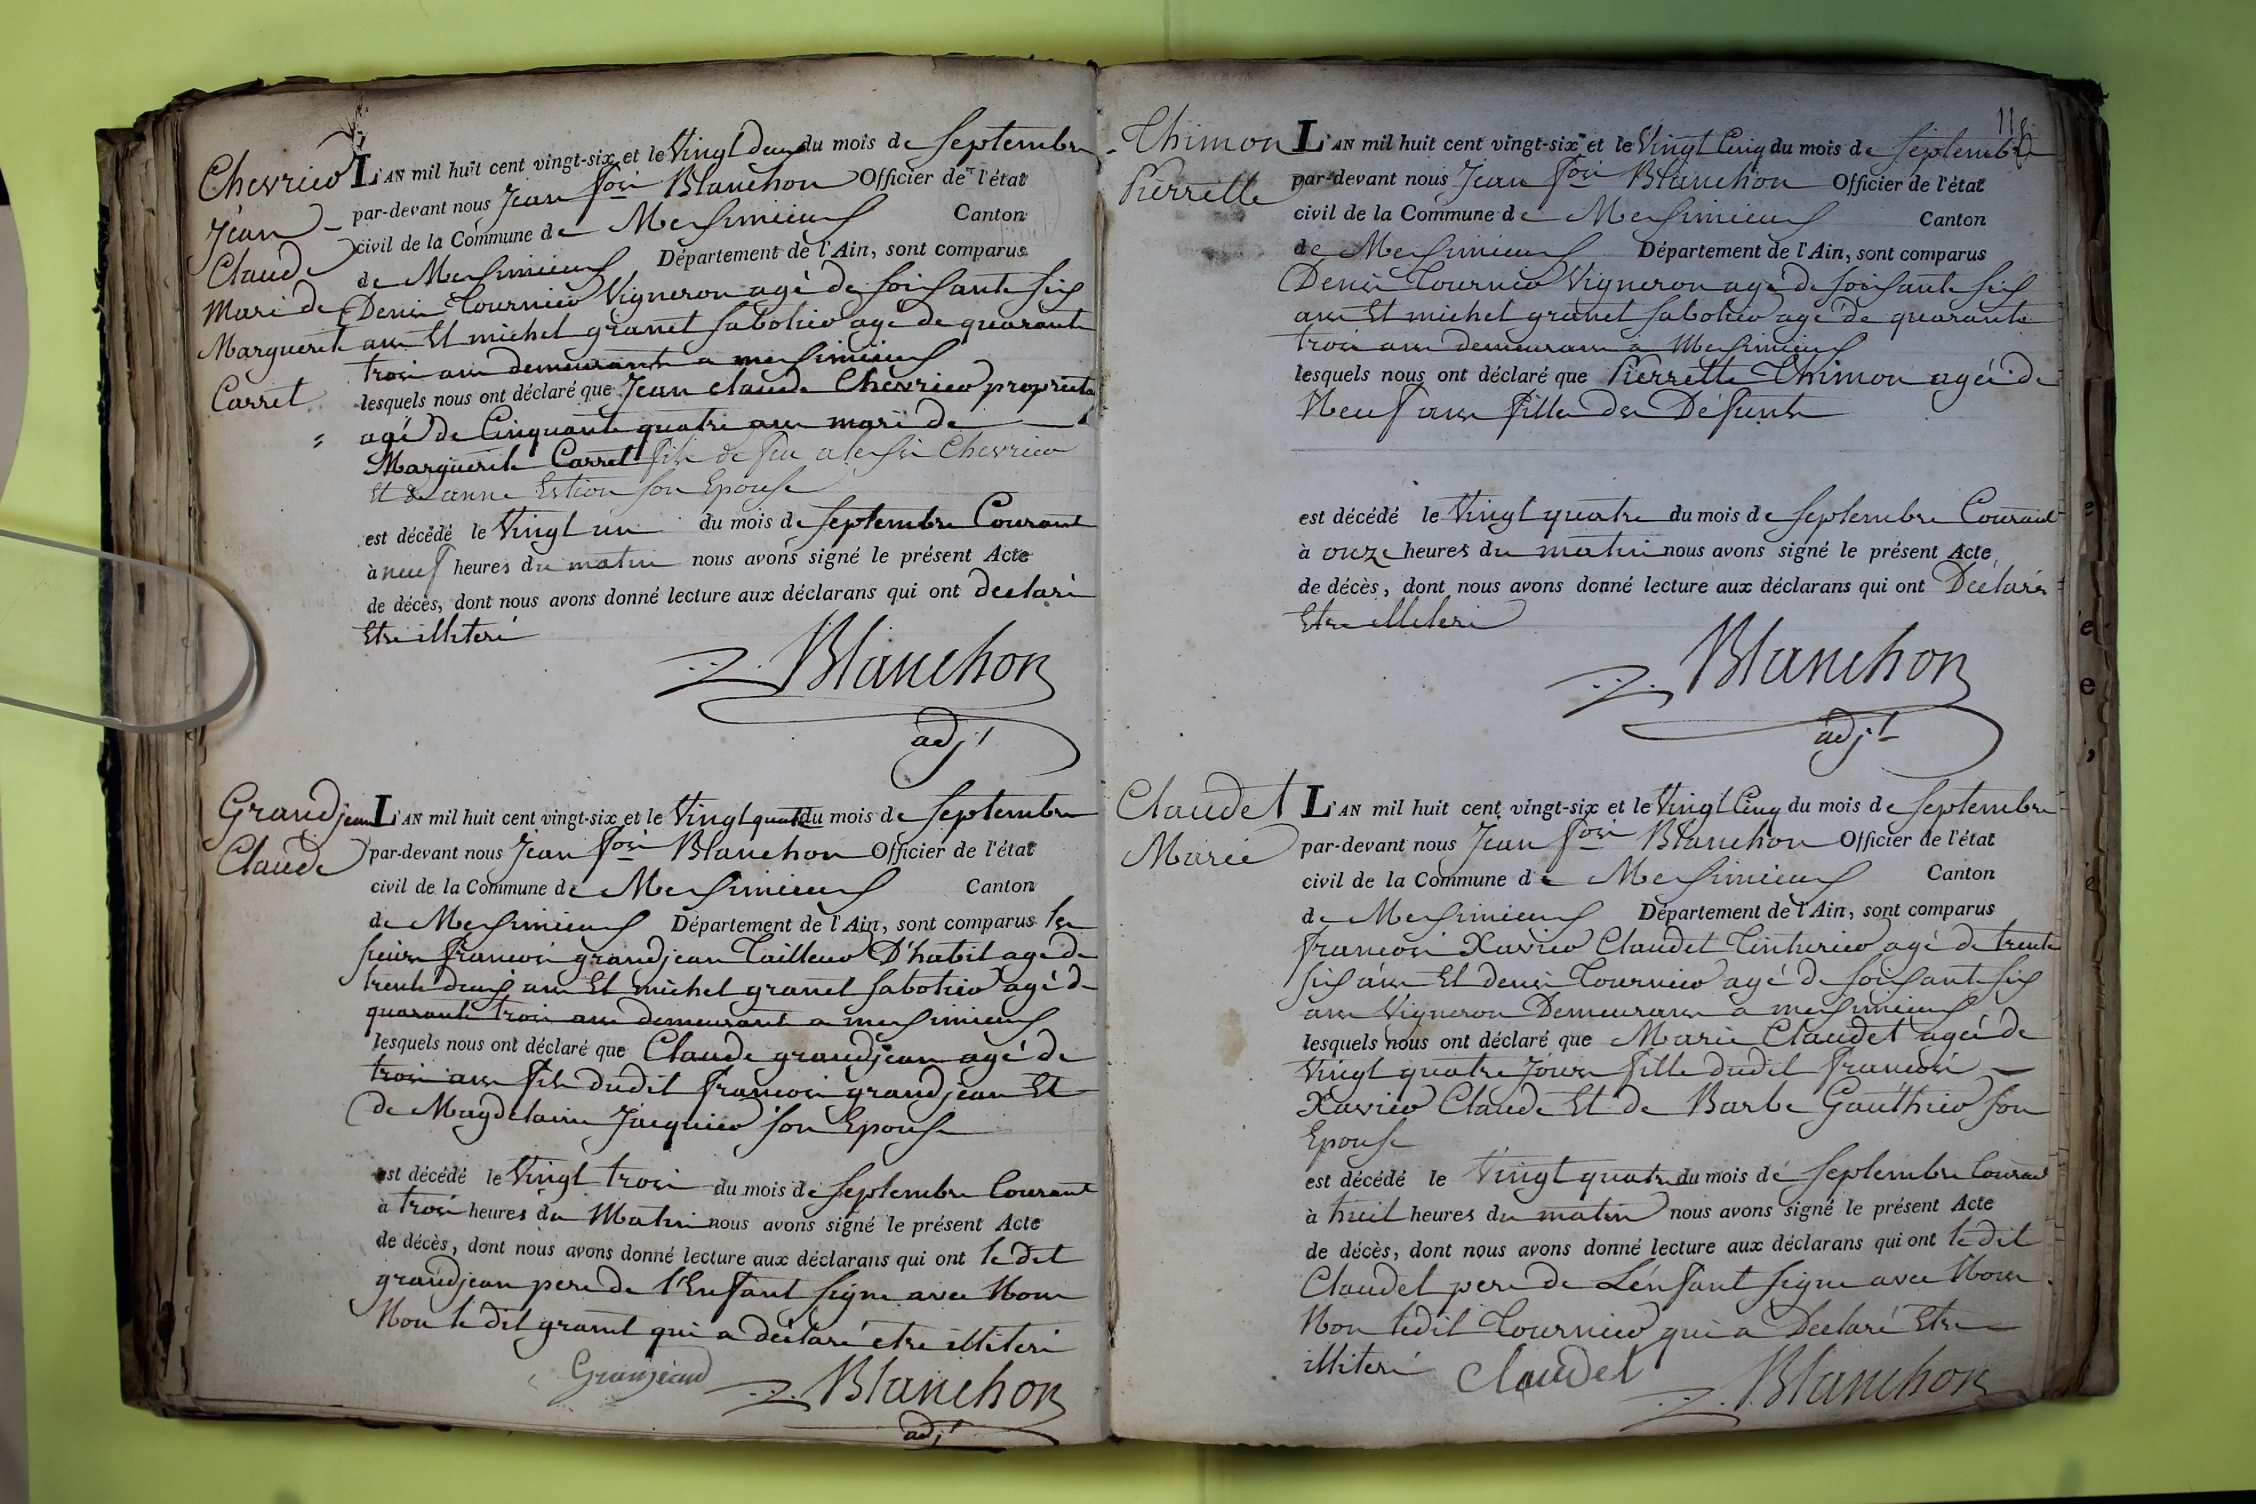 Chevrier
Jean
Claude
Mari de
Marguerite
Carret
L'AN mil huit cent vingt-six et le Vingt deux du mois de Septembre
par-devant nous Jean fois Blanchon Officier de l'état
civil de la Commune de Messimieux Canton
de Messimieux Département de l'Ain, sont comparus
Denis Tournier Vigneron agé de soixante six
ans Et michel granet sabotier agé de quarante
trois ans demeurants a messimieux
lesquels nous ont déclaré que Jean claude Chevrier propriéta
agé de Cinquante quatre ans mari de
Marguerite Carret fils de feu alexis Chevrier
et de anne Estion son Epouse
est décédé le Vingt un du mois de Septembre Courant
à neuf heures du matin nous avons signé le présent Acte
de décès, dont nous avons donné lecture aux déclarans qui ont declaré
Etre illiteré
Blanchon
adjt
Grandjean
Claude
L'AN mil huit cent vingt-six et le Vingt quatre du mois de Septembre
par-devant nous Jean fois Blanchon Officier de l'état
civil de la Commune de Messimieux Canton
de Messimieux Département de l'Ain, sont comparus les
sieurs francois grandjean Tailleur D'habit agé de
trente deux ans Et michel granet sabotier agé de
quarante trois ans demeurant a messimieux
lesquels nous ont déclaré que Claude grandjean agé de
trois ans fils dudit francois grandjean Et
de Magdelaine Jacquier son Epouse
est décédé le Vingt trois du mois de Septembre Courant
à trois heures du Matin nous avons signé le présent Acte
de décès, dont nous avons donné lecture aux déclarans qui ont le dit
grandjean pere de l'Enfant signe avec Nous
Non le dit granet qui a déclaré etre illiteré
Granjeand
Blanchon
adjt
Thimon
Pierrette
L'AN mil huit cent vingt-six et le Vingt Cinq du mois de Septembre
par-devant nous Jean fois Blanchon Officier de l'état
civil de la Commune de Messimieux Canton
de Messimieux Département de l'Ain, sont comparus
Denis Tournier Vigneron agé de soixante six
ans Et michel granet sabotier agé de quarante
trois ans demeurans a Messimieux
lesquels nous ont déclaré que Pierrette Thimon agée de
Neuf ans fille de Défunts
est décédé le Vingt quatre du mois de Septembre Courant
à onze heures du matin nous avons signé le présent Acte
de décès, dont nous avons donné lecture aux déclarans qui ont Déclaré
Etre illiteré
Blanchon
adjt
Claudet
Marie
L'AN mil huit cent vingt-six et le Vingt Cinq du mois de Septembre
par-devant nous Jean fois Blanchon Officier de l'état
civil de la Commune de Messimieux Canton
de Messimieux Département de l'Ain, sont comparus
francois Xavier Claudet Tinturier agé de trente
six ans Et denis Tournier agé de soixante six
ans Vigneron Demeurans a messimieux
lesquels nous ont déclaré que Marie Claudet agée de
Vingt quatre Jours fille dudit francois
Xavier Claude Et de Barbe Gauthier son
Epouse
est décédé le Vingt quatre du mois de Septembre Courant
à huit heures du matin nous avons signé le présent Acte
de décès, dont nous avons donné lecture aux déclarans qui ont le dit
Claudet pere de L'enfant signe avec Nous
Non ledit Tournier qui a Declaré Etre
illiteré
Claudet
Blanchon